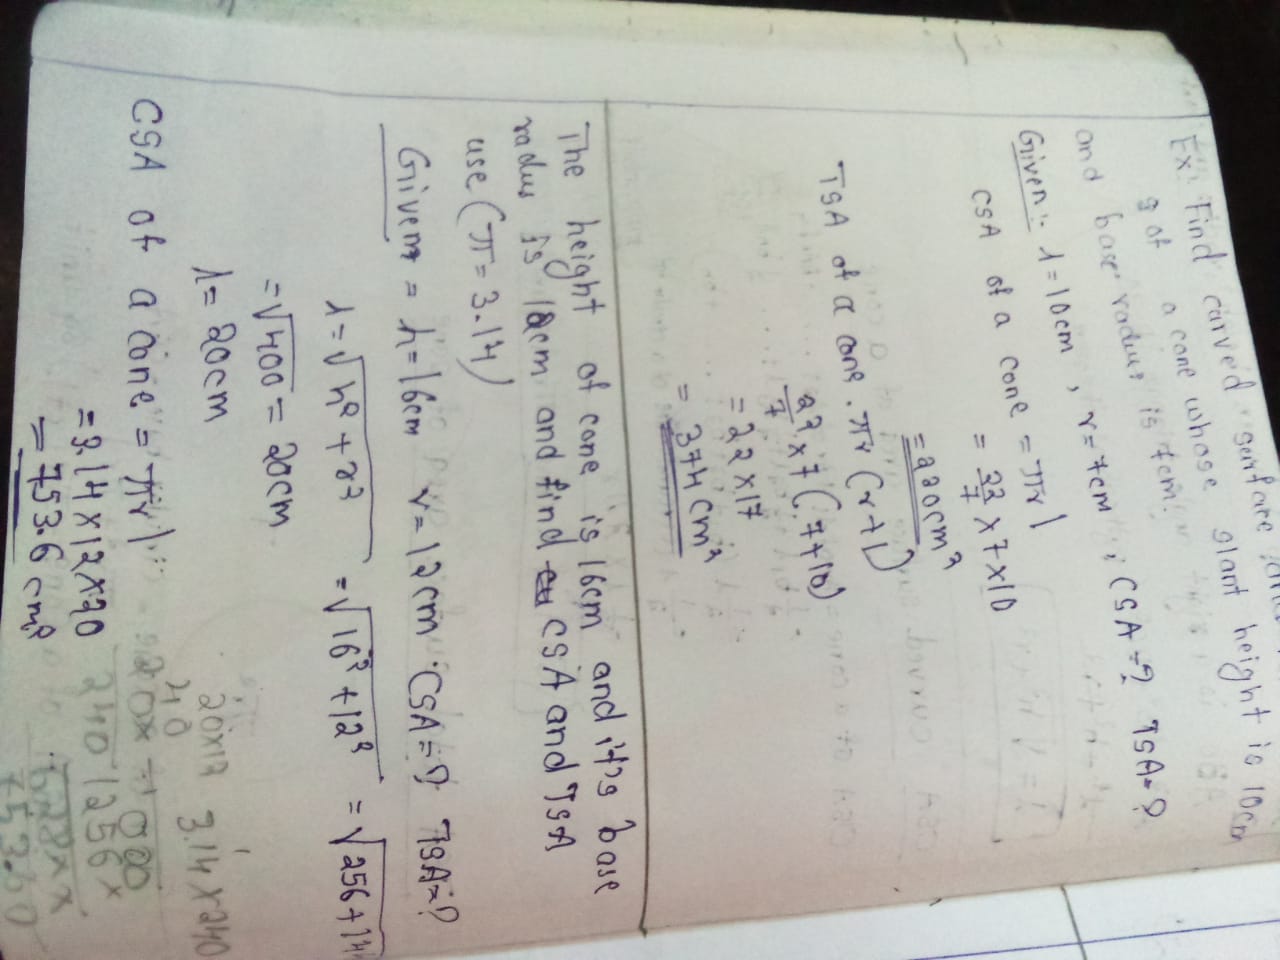 Ex: Find carved surface
g of a cone whose slant height is 10cm
and base radius is 7cm.
Given:- l=10cm , r=7cm ; CSA=? TSA=?
CSA of a cone = πrl
= 22/7 x 7 x 10
= 220cm²
TSA of a cone . πr (r+l)
22/7 x 7 (7+10)
= 22 x 17
= 374 cm²
The height of cone is 16cm and it's base
radus is 12cm and find CSA and TSA
use (π= 3.14)
Given = h=16cm r=12cm CSA=? TSA=?
l=√h²+r² =√16²+12² =√256+144
=√400 = 20cm
l= 20cm
20x12 3.14x240
40 000
20x 1256x
240 628xx
753.60
CSA of a cone = πrl
=3.14x12x20
= 753.6 cm²